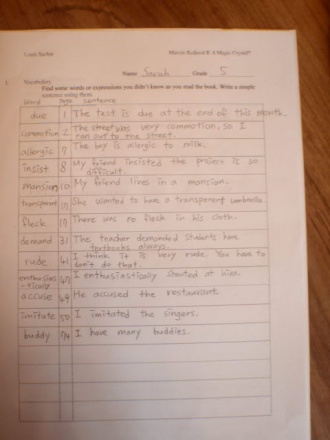 Louis Sachar
Marvin Redpost 8: A Magic Crystal?
Name Sarah Grade 5
Vocabulary
Find some words or expressions you didn't know as you read the book. Write a simple
sentence using them.
Word Page sentence
due 1 The test is due at the end of this month.
commotion 2 The street was very commotion, so I
ran out to the street.
allergic 7 The boy is allergic to milk.
insist 8 My friend insisted the priers is so
difficult.
mansion 10 My friend lives in a mansion.
transparent 17 She wanted to have a transparent umbrella.
fleck 19 There was no fleck in his cloth.
demand 31 The teacher demanded students have
textbooks always.
rude 41 I think it is very rude. You have to
don't do that.
enthusias 47 I enthusiastically shouted at him.
-tically
accuse 49 He accused the restaurant.
imitate 50 I imitated the singers.
buddy 74 I have many buddies.